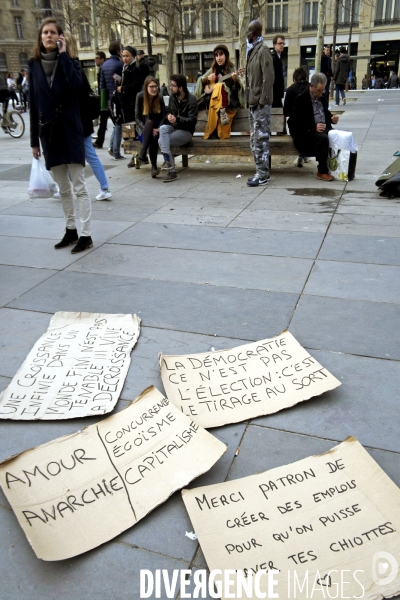 UNE CROISSANCE
INFINIE DANS UN
MONDE FINI N'EST PAS
TENABLE !!! VIVE
LA DECROISSANCE
LA DÉMOCRATIE
CE N'EST PAS
L'ÉLECTION : C'EST
LE TIRAGE AU SORT
AMOUR
ANARCHIE
CONCURRENCE
EGOÏSME
CAPITALISME
MERCI PATRON DE
CRÉER DES EMPLOIS
POUR QU'ON PUISSE
LAVER TES CHIOTTES
DIVERGENCE IMAGES